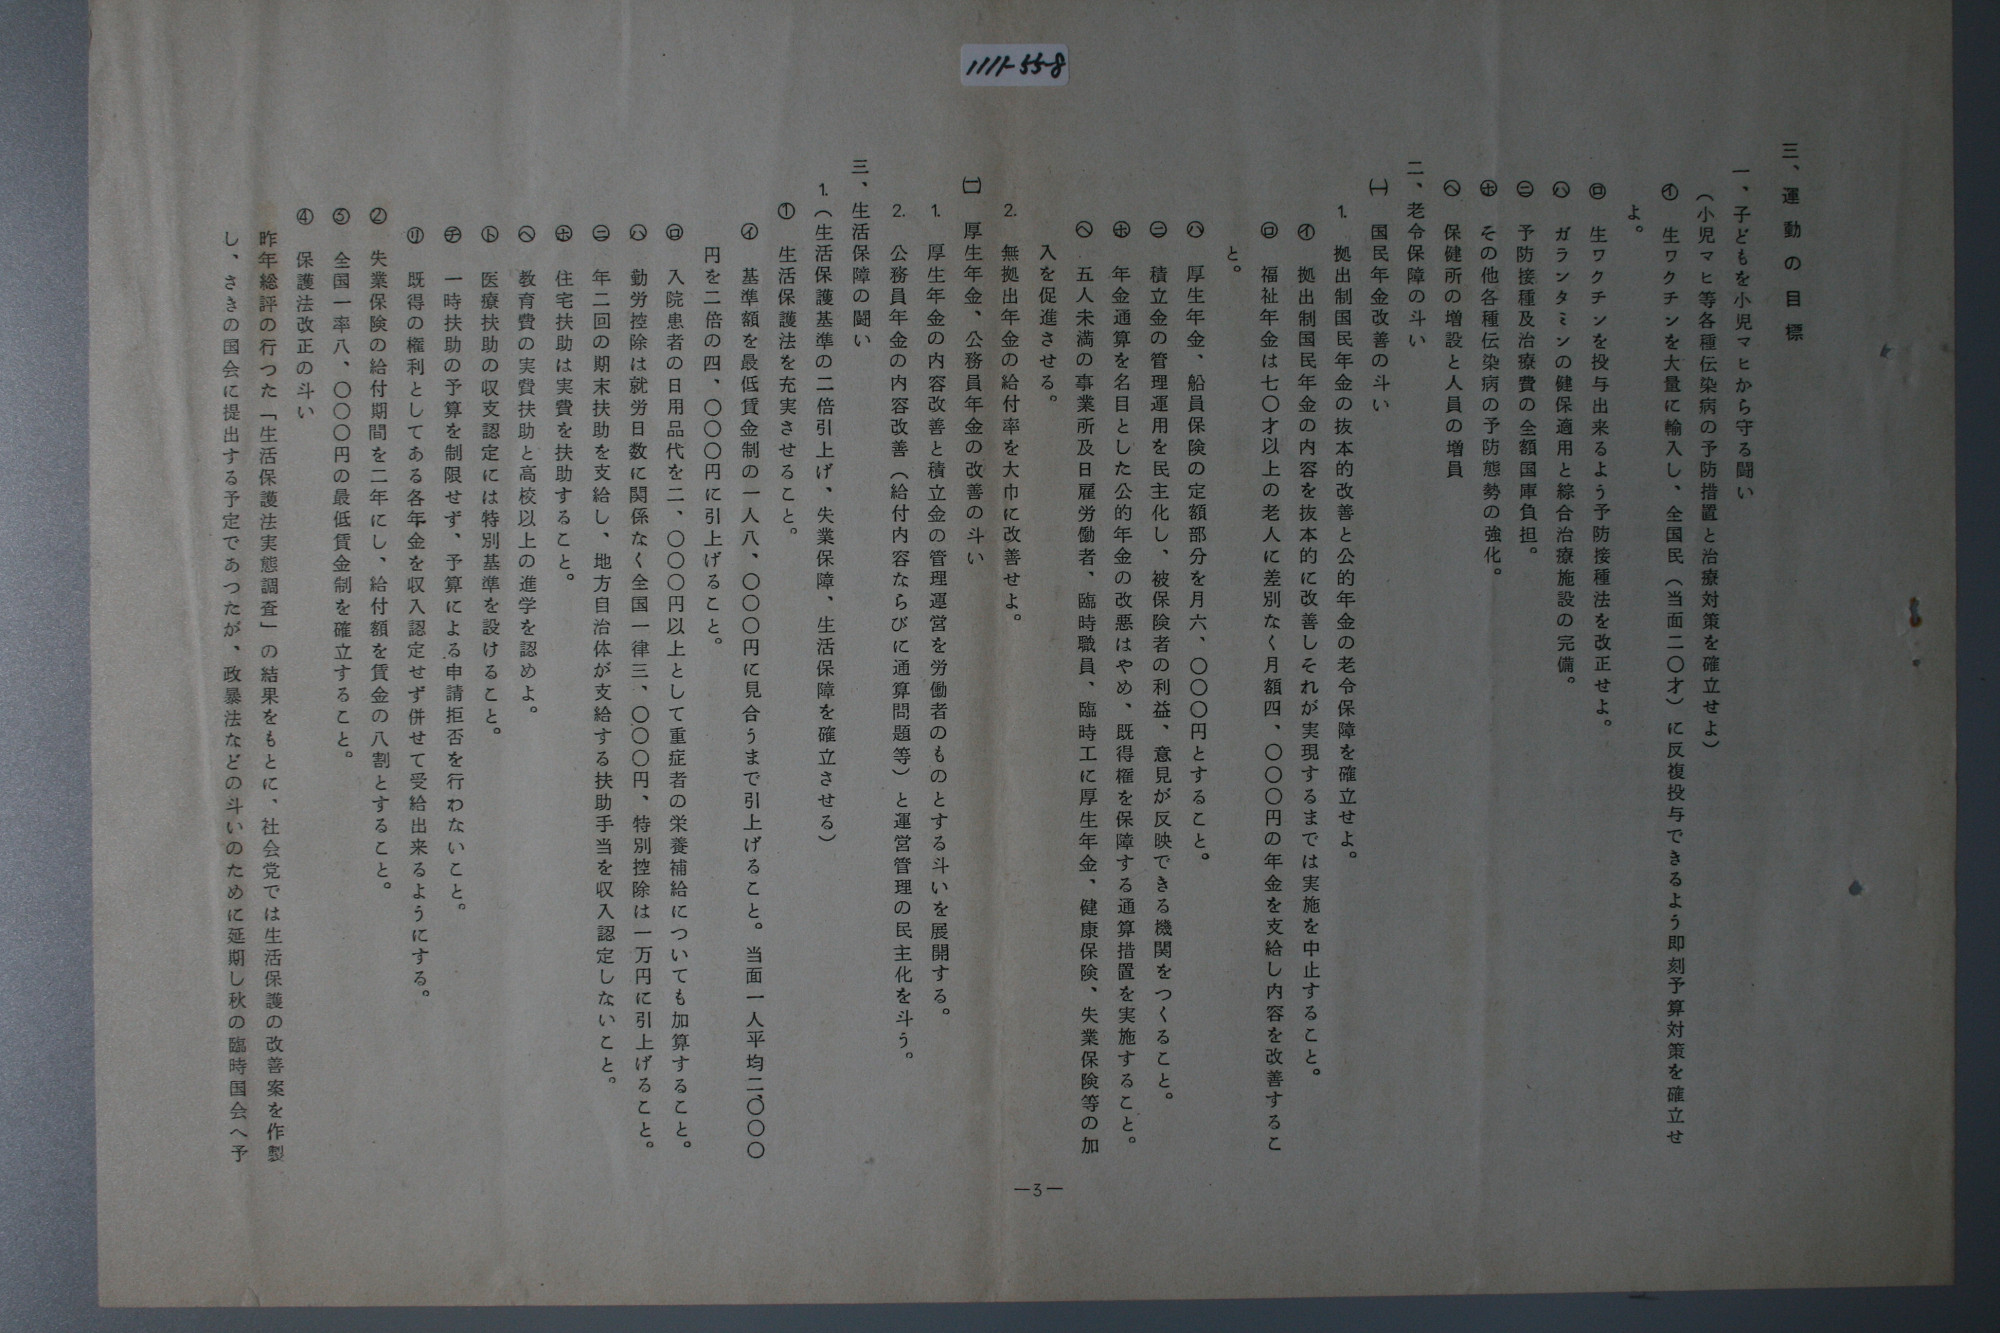 1111-55-8
三、運動の目標
一、子どもを小児マヒから守る闘い
(小児マヒ等各種伝染病の予防措置と治療対策を確立せよ)
㋑ 生ワクチンを大量に輸入し、全国民(当面二〇才)に反複投与できるよう即刻予算対策を確立せ
よ。
㋺ 生ワクチンを投与出来るよう予防接種法を改正せよ。
㋩ ガランタミンの健保適用と綜合治療施設の完備。
㋥ 予防接種及治療費の全額国庫負担。
㋭ その他各種伝染病の予防態勢の強化。
㋬ 保健所の増設と人員の増員
二、老令保障の斗い
㈠ 国民年金改善の斗い
1. 拠出制国民年金の抜本的改善と公的年金の老令保障を確立せよ。
㋑ 拠出制国民年金の内容を抜本的に改善しそれが実現するまでは実施を中止すること。
㋺ 福祉年金は七〇才以上の老人に差別なく月額四、〇〇〇円の年金を支給し内容を改善するこ
と。
㋩ 厚生年金、船員保険の定額部分を月六、〇〇〇円とすること。
㋥ 積立金の管理運用を民主化し、被保険者の利益、意見が反映できる機関をつくること。
㋭ 年金通算を名目とした公的年金の改悪はやめ、既得権を保障する通算措置を実施すること。
㋬ 五人未満の事業所及日雇労働者、臨時職員、臨時工に厚生年金、健康保険、失業保険等の加
入を促進させる。
2. 無拠出年金の給付率を大巾に改善せよ。
㈡ 厚生年金、公務員年金の改善の斗い
1. 厚生年金の内容改善と積立金の管理運営を労働者のものとする斗いを展開する。
2. 公務員年金の内容改善(給付内容ならびに通算問題等)と運営管理の民主化を斗う。
三、生活保障の闘い
1.(生活保護基準の二倍引上げ、失業保障、生活保障を確立させる)
① 生活保護法を充実させること。
㋑ 基準額を最低賃金制の一人八、〇〇〇円に見合うまで引上げること。当面一人平均二、〇〇〇
円を二倍の四、〇〇〇円に引上げること。
㋺ 入院患者の日用品代を二、〇〇〇円以上として重症者の栄養補給についても加算すること。
㋩ 勤労控除は就労日数に関係なく全国一律三、〇〇〇円、特別控除は一万円に引上げること。
㋥ 年二回の期末扶助を支給し、地方自治体が支給する扶助手当を収入認定しないこと。
㋭ 住宅扶助は実費を扶助すること。
㋬ 教育費の実費扶助と高校以上の進学を認めよ。
㋣ 医療扶助の収支認定には特別基準を設けること。
㋠ 一時扶助の予算を制限せず、予算による申請拒否を行わないこと。
㋷ 既得の権利としてある各年金を収入認定せず併せて受給出来るようにする。
② 失業保険の給付期間を二年にし、給付額を賃金の八割とすること。
③ 全国一率八、〇〇〇円の最低賃金制を確立すること。
④ 保護法改正の斗い
昨年総評の行つた「生活保護法実態調査」の結果をもとに、社会党では生活保護の改善案を作製
し、さきの国会に提出する予定であつたが、政暴法などの斗いのために延期し秋の臨時国会へ予
—3—